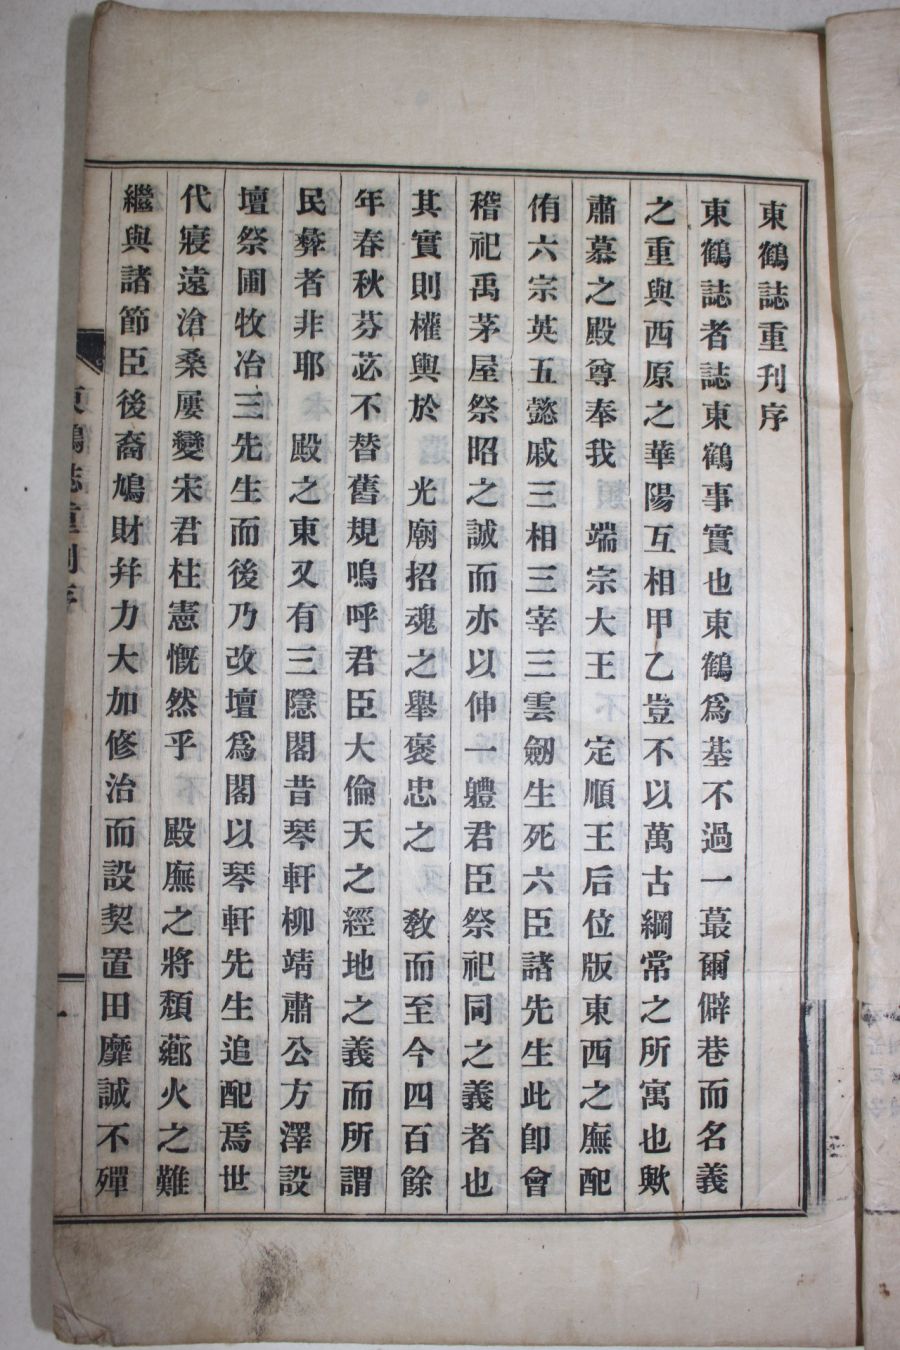 東鶴誌重刋序
東鶴誌者誌東鶴事實也東鶴爲基不過一蕞爾僻巷而名義
之重與西原之華陽互相甲乙豈不以萬古綱常之所寓也歟
肅慕之殿尊奉我　端宗大王　定順王后位版東西之廡配
侑六宗英五懿戚三相三宰三雲劒生死六臣諸先生此卽會
稽祀禹茅屋祭昭之誠而亦以仲一軆君臣祭祀同之義者也
其實則權輿於　光廟招魂之舉褒忠之　敎而至今四百餘
年春秋芬苾不替舊規嗚呼君臣大倫天之經地之義而所謂
民彜者非耶　殿之東又有三隱閣昔琴軒柳靖肅公方澤設
壇祭圃牧冶三先生而後乃改壇爲閣以琴軒先生追配焉世
代寢遠滄桑屢變宋君柱憲慨然乎　殿廡之將頹薌火之難
繼與諸節臣後裔鳩財幷力大加修治而設契置田靡誠不殫
東鶴誌重刋序
一